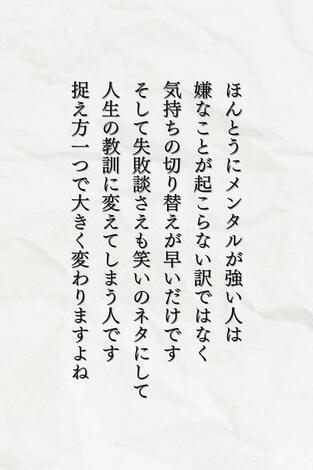 ほんとうにメンタルが強い人は
嫌なことが起こらない訳ではなく
気持ちの切り替えが早いだけです
そして失敗談さえも笑いのネタにして
人生の教訓に変えてしまう人です
捉え方一つで大きく変わりますよね